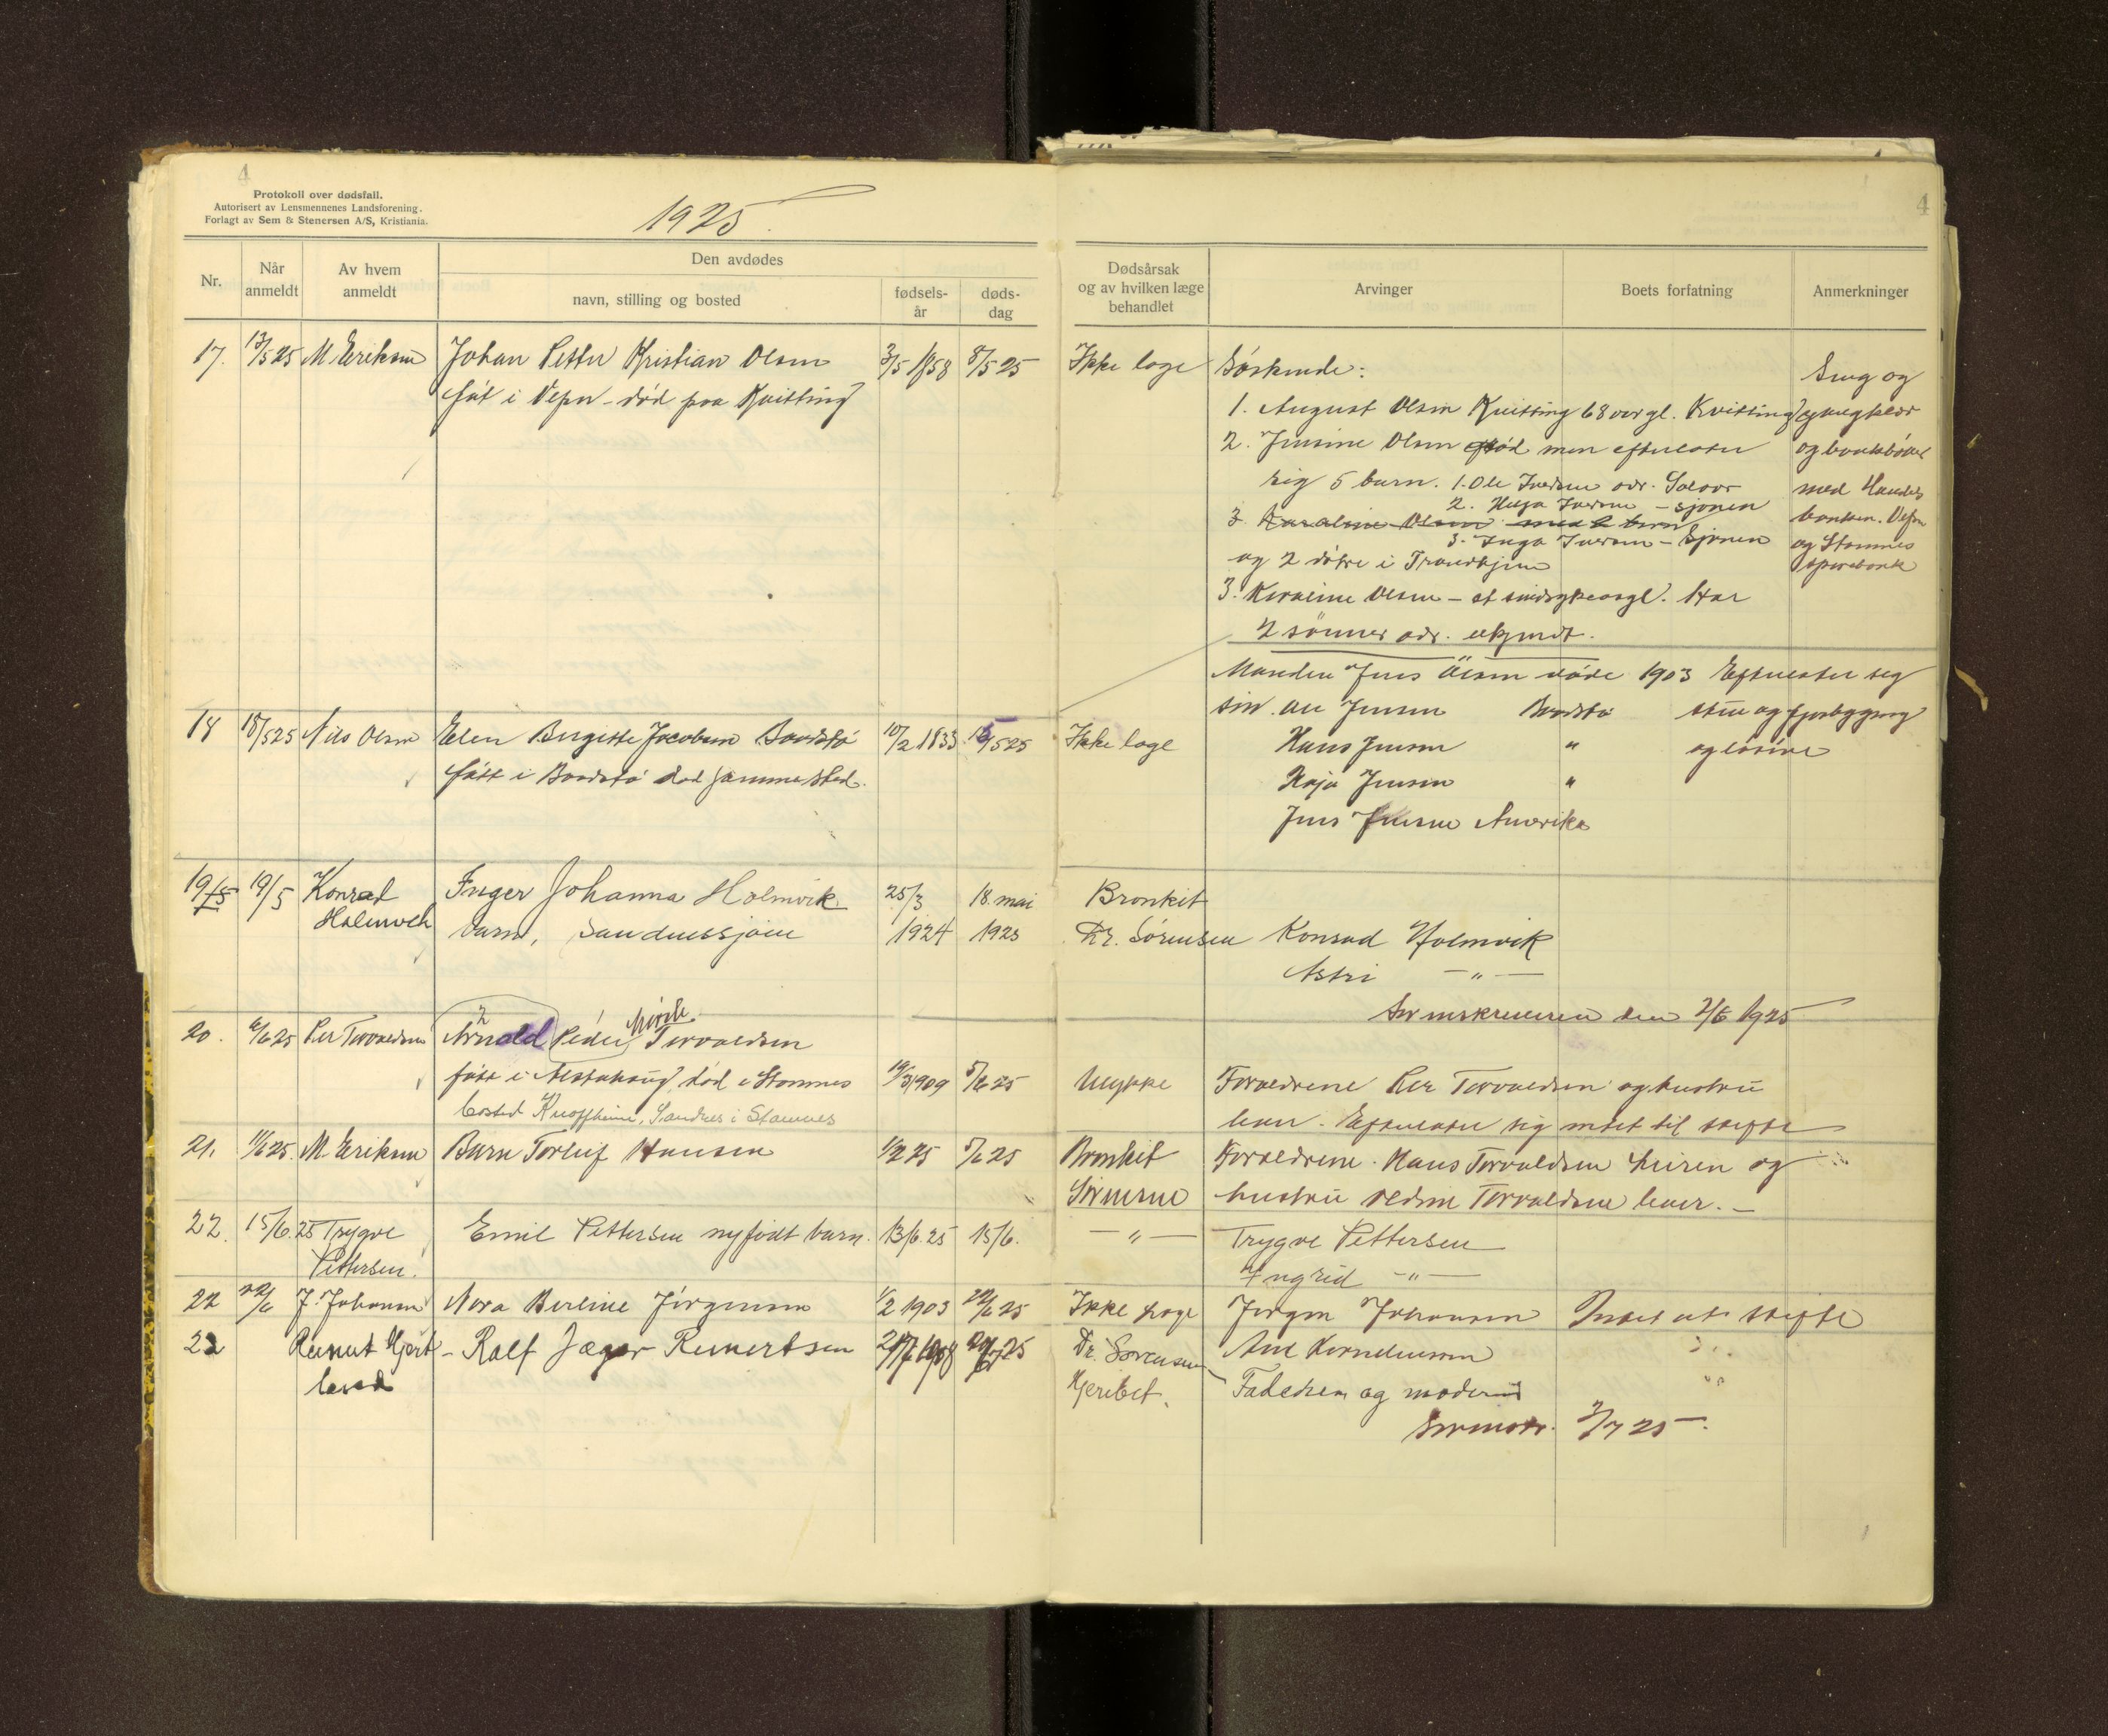 4
Protokoll over dødsfall.
Autorisert av Lensmennenes Landsforening.
Forlagt av Sem & Stenersen A/S, Kristiania.
1925
4
Nr.
Når anmeldt
Av hvem anmeldt
Den avdødes
navn, stilling og bosted
fødsels-
år
døds-
dag
Dødsårsak
og av hvilken læge
behandlet
Arvinger
Boets forfatning
Anmerkninger
17. 13/5 25 M Eriksen Johan Petter Kristian Olsen 3/5 1858 8/5 25 Ikke læge Søskende:
føt i Vefsn - død paa Kvitting
1. August Olsen Kvitting 68 aar gl. Kvitting
2. Jensine Olsen død men efterlater
sig 5 barn. 1. Ole Iversen adr.
2. Iversen - Sjonen
3. Karoline Olsen
3. Inga Iversen - Sjonen
og 2 døtre i Trondhjem
3. Karoline Olsen - et sindsykeasyl. Har
2 sønner adr. ukjendt.
Seng og
gangklær
og bankbøker
med Handels
banken. Vefsn
og Stamnes
sparebank
18 18/5 25 Nils Olsen Elen Birgitte Jacobsen Baadstø 10/2 1833 15/5 25 Ikke læge
føtt i Baadstø død samme sted.
Manden Jens Olsen døde 1903 Efterlater seg
søn. Jensen Baadstø
Hans Jensen "
Kaja Jensen "
Jens Jensen Amerika
stue og fjøsbygging
og løsøre
19 19/5 Konrad Holmvik Inger Johanna Holmvik 25/3 1924 18. mai 1925 Bronkit
barn, Sandnessjøen
Dr. Sørensen Konrad Holmvik
Astri - " -
Sorenskriveren den 2/6 1925
20. 6/6 25 Per Torvaldsen Arnold Peder Torvaldsen
føtt i Alstahaug død i Stamnes 19/3 1909 5/6 25 Ulykke Forældrene Per Torvaldsen og hustru
bosted Sandnes i Stamnes
lever. Efterlater sig intet til skifte
21. 11/6 25. M. Eriksen Barn Torleif Hansen 1/2 25 5/6 25 Bronkit Forældrene. Hans Torvaldsen Leiren og
Sørensen hustru Torvaldsen lever. -
22. 15/6. 25 Trygve Pettersen. Emil Pettersen nyfødt barn. 13/6. 25 15/6. - " - Trygve Pettersen
Ingrid - " -
22 22/6 J. Johansen Nora Berline Jørgensen 1/2 1903 22/6 25 Ikke læge Jørgen Johansen Intet at skifte
Ane Kornelinssen
22 Reinert Ralf Jæger Reinertsen Dr. Sørensen
Faderen og moderen
3/7 25